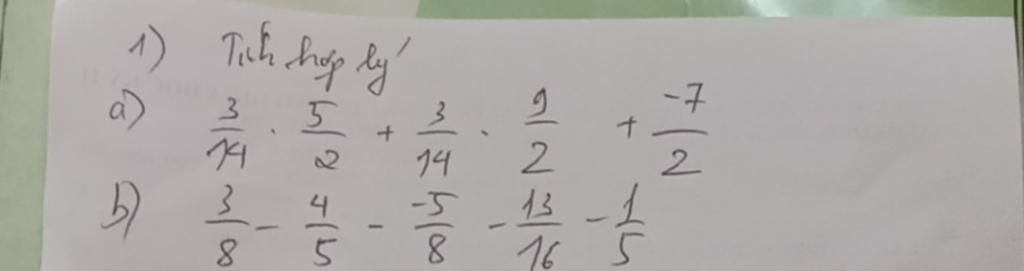 1) Tính hợp lý
a) 3/14 . 5/2 + 3/14 . 9/2 + -7/2
b) 3/8 - 4/5 - -5/8 - 13/16 - 1/5